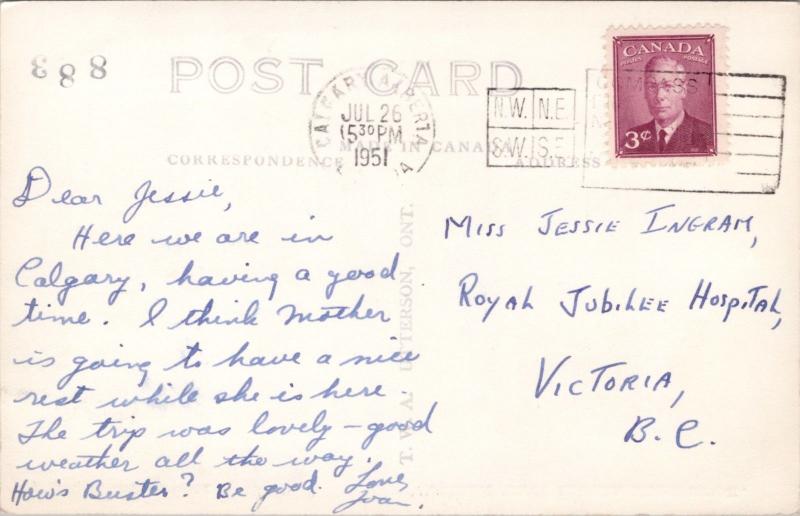 388
POST CARD
CALGARY ALBERTA
JUL 26
5 30 PM
1951
MADE IN CANADA
CORRESPONDENCE
ADDRESS
N.W. N.E.
S.W. S.E.
CANADA
POSTES POSTAGE
3¢
Dear Jessie,
Here we are in
Calgary, having a good
time. I think Mother
is going to have a nice
rest while she is here.
The trip was lovely - good
weather all the way.
How's Buster? Be good. Love,
Joan.
ONT.
Miss Jessie Ingram,
Royal Jubilee Hospital,
Victoria,
B.C.